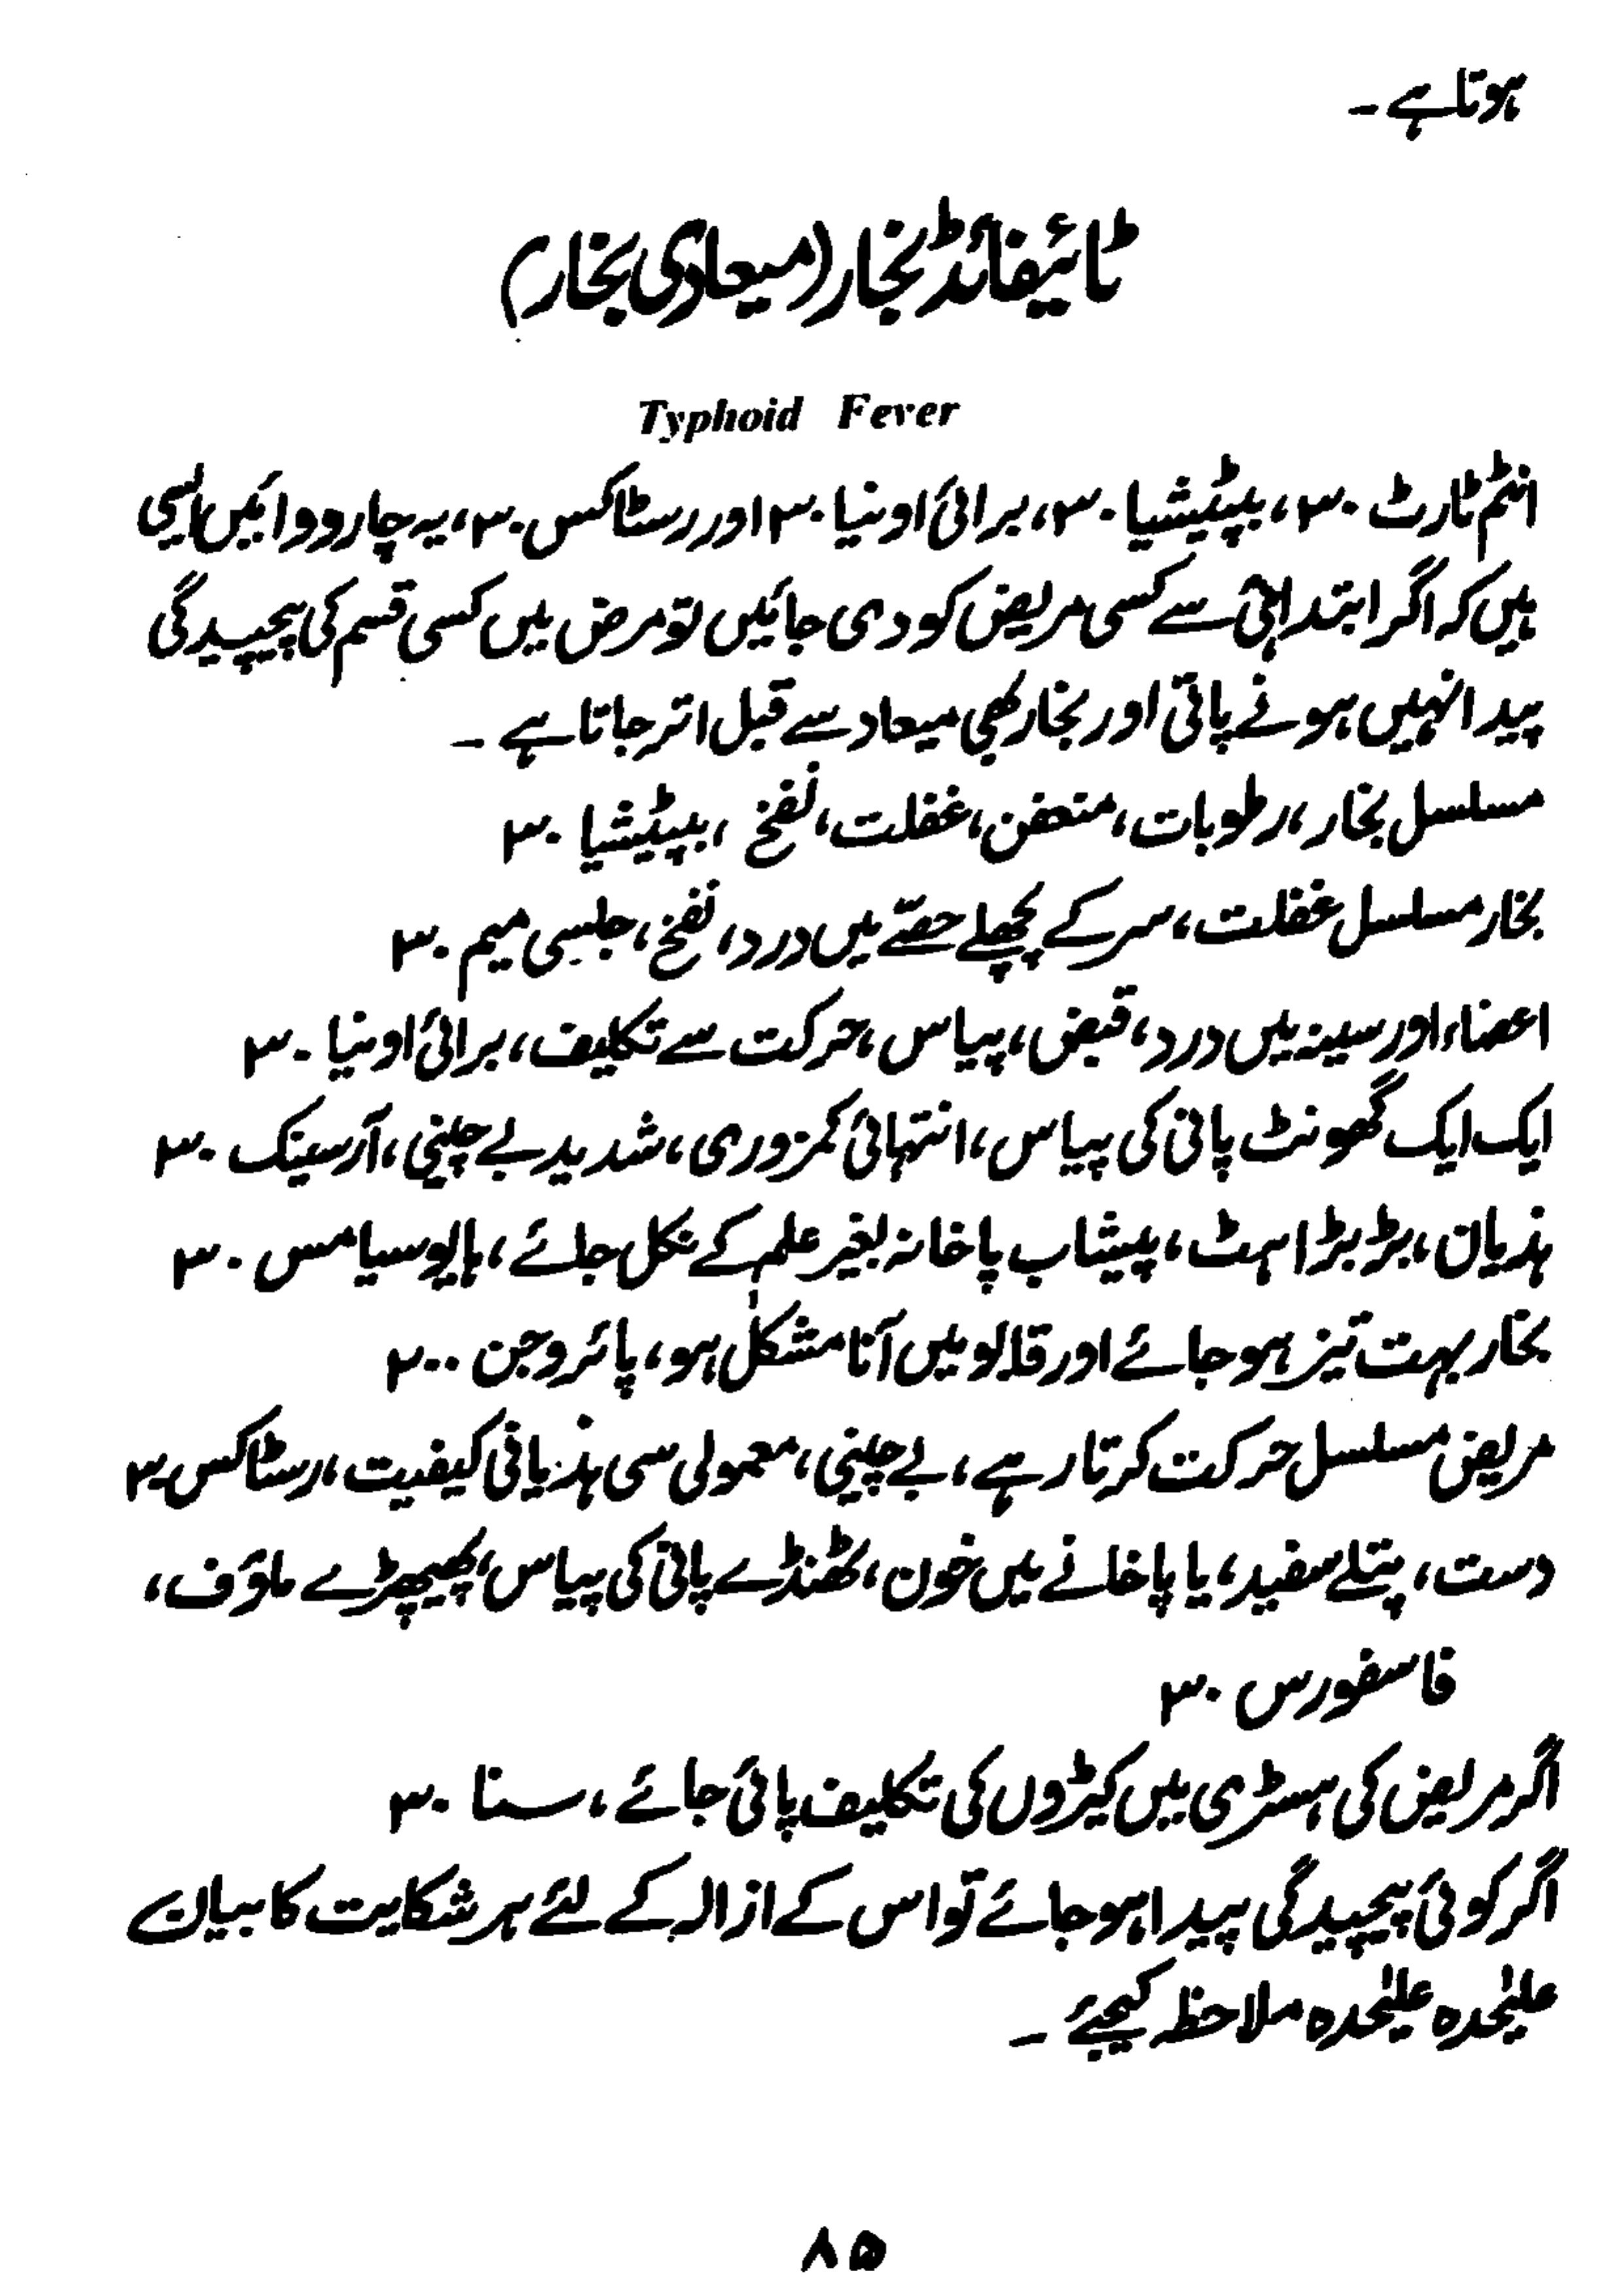 ہوتا ہے ۔
ٹائیفائڈ بخار (میعادی بخار)
Typhoid Fever
انٹم ٹارٹ ۳۰، بپٹیشیا ۳۰، برائی اونیا ۳۰ اور رسٹاکس ۳۰، یہ چار دوائیں ایسی
ہیں کہ اگر ابتدا ہی سے کسی مریض کو دی جائیں تو مرض میں کسی قسم کی پیچیدگی
پیدا نہیں ہونے پاتی اور بخار بھی میعاد سے قبل اتر جاتا ہے ۔
مسلسل بخار، رطوبات، متعفن، غفلت، نفخ، بپٹیشیا ۳۰
بخار مسلسل غفلت، سر کے پچھلے حصّے میں درد، نفخ، جلسی میم ۳۰
اعضاء اور سینہ میں درد، قبض، پیاس، حرکت سے تکلیف، برائی اونیا ۳۰
ایک ایک گھونٹ پانی کی پیاس، انتہائی کمزوری، شدید بے چینی، آرسینک ۳۰
ہذیان، بڑبڑاہٹ، پیشاب پاخانہ بغیر علم کے نکل جائے، ہایوسیامس ۳۰
بخار بہت تیز ہو جائے اور قابو میں آنا مشکل ہو، پائروجن ۲۰۰
مریض مسلسل حرکت کرتا رہے، بے چینی، معمولی سی ہذیانی کیفیت، رسٹاکس ۳۰
دست، پتلے سفید، یا پاخانے میں خون، ٹھنڈے پانی کی پیاس، پھیپھڑے ماؤف،
فاسفورس ۳۰
اگر مریض کی ہسٹری میں کیڑوں کی تکلیف پائی جائے، سنا ۳۰
اگر کوئی پیچیدگی پیدا ہو جائے تو اس کے ازالہ کے لئے ہر شکایت کا بیان
علیٰحدہ علیٰحدہ ملاحظہ کیجئے ۔
۸۵